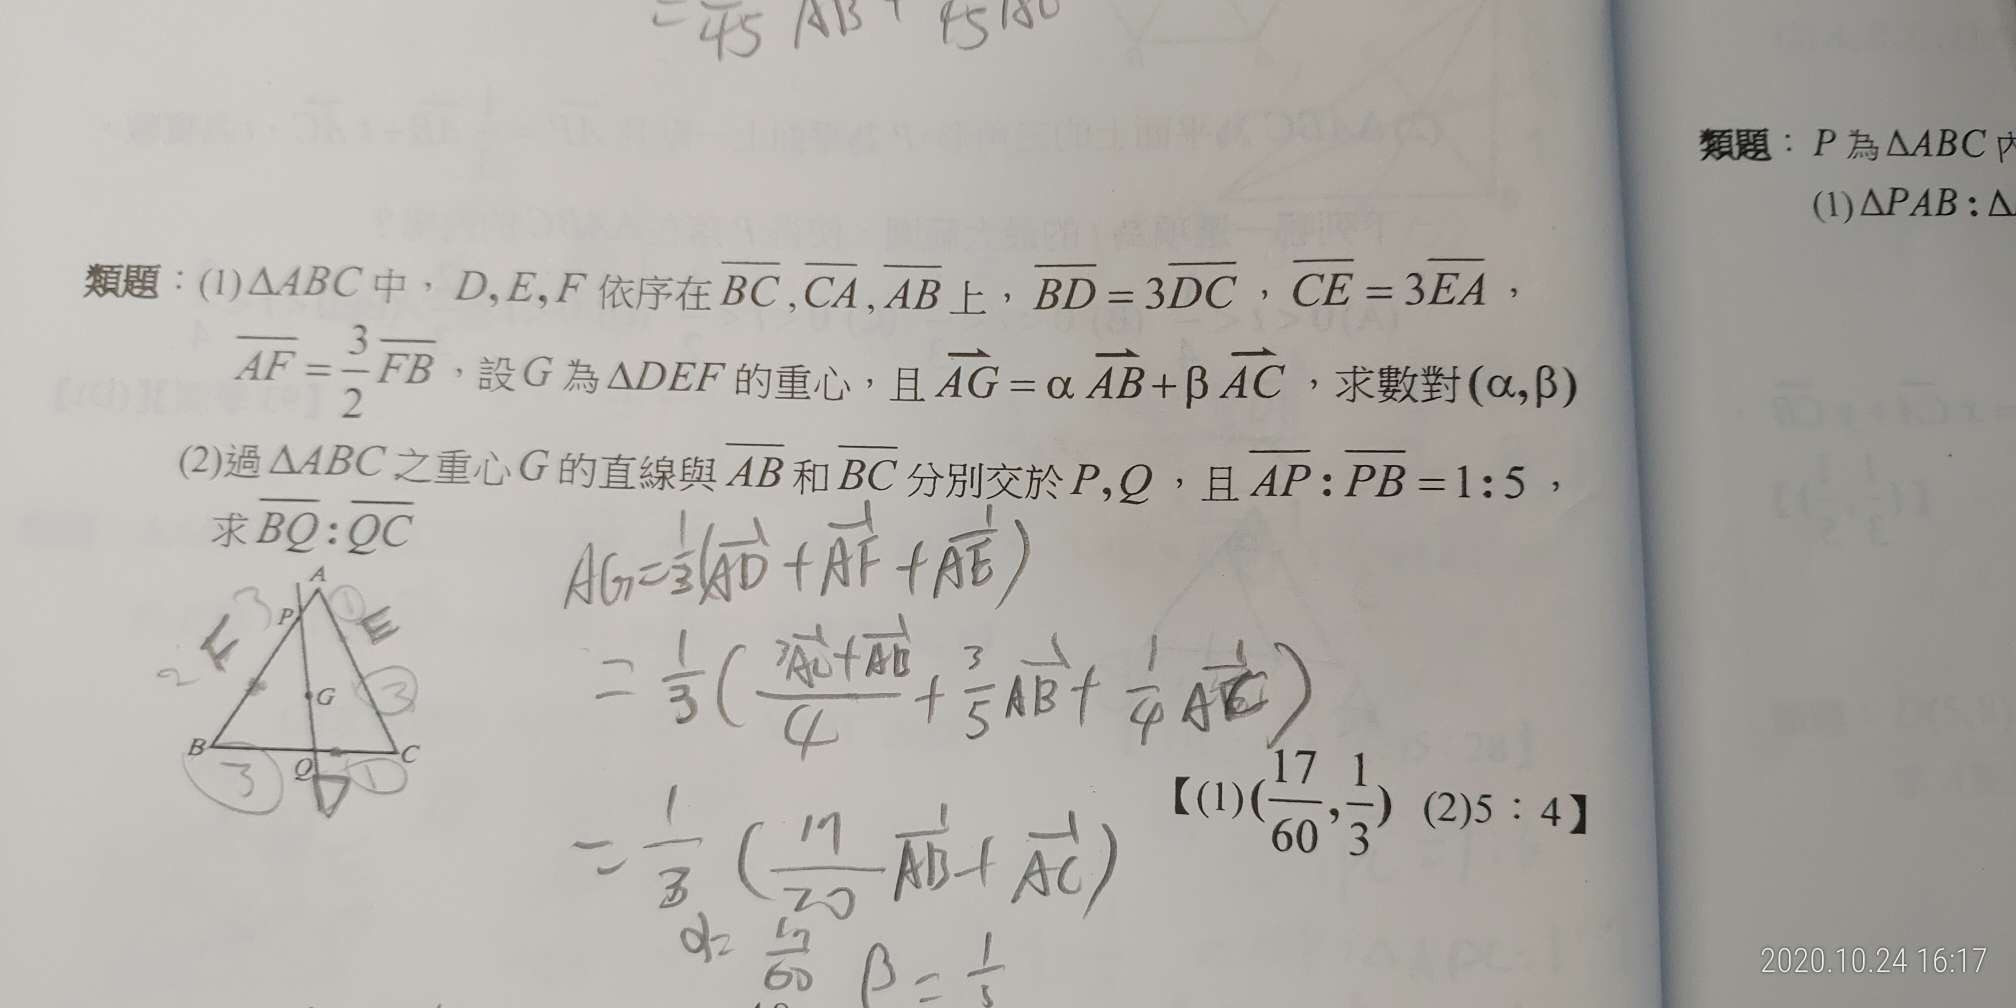 = /45 AB + /45
類題：P 為 ΔABC 內
(1) ΔPAB : Δ
類題：(1) ΔABC 中，D, E, F 依序在 \overline{BC}, \overline{CA}, \overline{AB} 上，\overline{BD} = 3\overline{DC}，\overline{CE} = 3\overline{EA}，
\overline{AF} = \frac{3}{2}\overline{FB}，設 G 為 ΔDEF 的重心，且 \overrightarrow{AG} = α\overrightarrow{AB} + β\overrightarrow{AC}，求數對 (α,β)
(2)過 ΔABC 之重心 G 的直線與 \overline{AB} 和 \overline{BC} 分別交於 P, Q，且 \overline{AP} : \overline{PB} = 1 : 5，
求 \overline{BQ} : \overline{QC}
A
3 P ① E
F
2
G ③
B C
3 Q ①
D
AG = \frac{1}{3}(\overrightarrow{AD} + \overrightarrow{AF} + \overrightarrow{AE})
= \frac{1}{3}(\frac{3\overrightarrow{AC} + \overrightarrow{AB}}{4} + \frac{3}{5}\overrightarrow{AB} + \frac{1}{4}\overrightarrow{AC})
【(1)(\frac{17}{60}, \frac{1}{3}) (2)5：4】
= \frac{1}{3}(\frac{17}{20}\overrightarrow{AB} + \overrightarrow{AC})
α = \frac{17}{60} β = \frac{1}{3}
2020.10.24 16:17